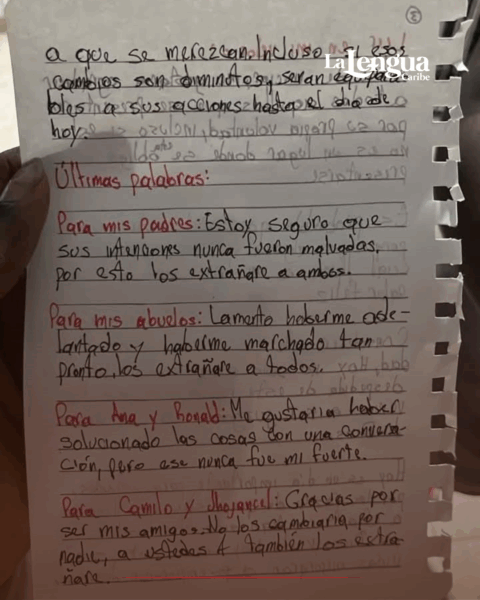 3
La Lengua
Caribe
a que se merezcan. Incluso si esos
cambios son diminutos y seran
bles a sus acciones hasta el dia de
hoy.
Últimas palabras:
Para mis padres: Estoy seguro que
sus intenciones nunca fueron malvadas,
por esto los extrañare a ambos.
Para mis abuelos: Lamento haberme ade-
lantado y haberme marchado tan
pronto, los extrañare a todos.
Para Ana y Ronald: Me gustaria haber
solucionado las cosas con una conversa-
ción, pero ese nunca fue mi fuerte.
Para Camilo y Jhojancel: Gracias por
ser mis amigos. No los cambiaria por
nadie, a ustedes también los extra-
ñare.